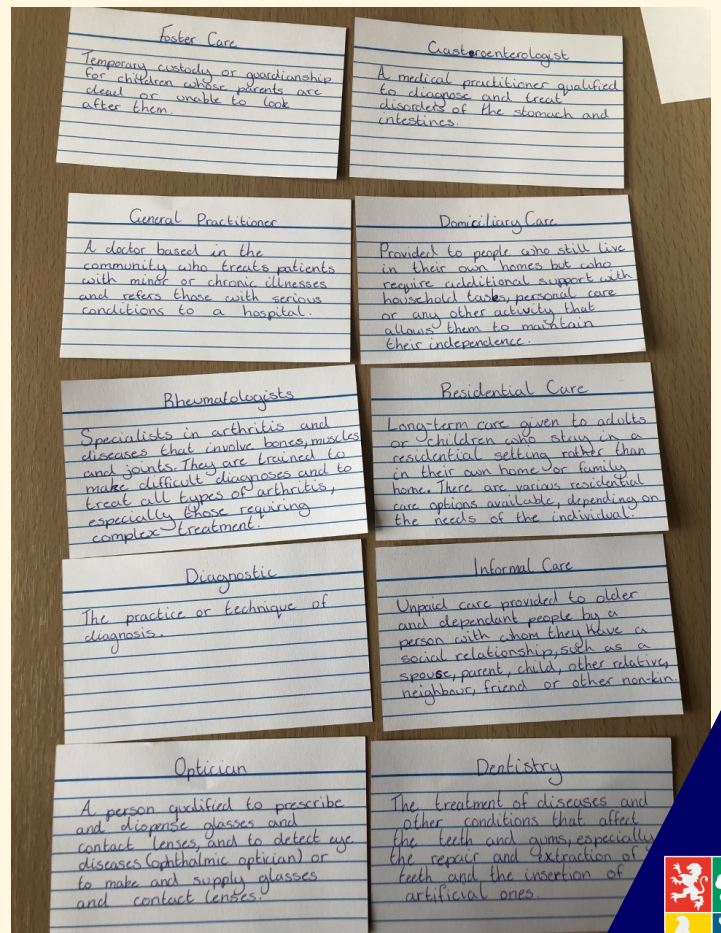 Foster Care
Temporary custody or guardianship
for children whose parents are
dead or unable to look
after them.
Gasteroenterologist
A medical practitioner qualified
to diagnose and treat
disorders of the stomach and
intestines.
General Practitioner
A doctor based in the
community who treats patients
with minor or chronic illnesses
and refers those with serious
conditions to a hospital.
Domiciliary Care
Provided to people who still live
in their own homes but who
require additional support with
household tasks, personal care
or any other activity that
allows them to maintain
their independence.
Rheumatologists
Specialists in arthritis and
diseases that involve bones, muscles
and joints. They are trained to
make difficult diagnoses and to
treat all types of arthritis,
especially those requiring
complex treatment.
Residential Care
Long-term care given to adults
or children who stay in a
residential setting rather than
in their own home or family
home. There are various residential
care options available, depending on
the needs of the individual.
Diagnostic
The practice or technique of
diagnosis.
Informal Care
Unpaid care provided to older
and dependant people by a
person with whom they have a
social relationship, such as a
spouse, parent, child, other relative,
neighbour, friend or other non-kin.
Optician
A person qualified to prescribe
and dispense glasses and
contact lenses, and to detect eye
diseases (ophthalmic optician) or
to make and supply glasses
and contact lenses.
Dentistry
The treatment of diseases and
other conditions that affect
the teeth and gums, especially
the repair and extraction of
teeth and the insertion of
artificial ones.